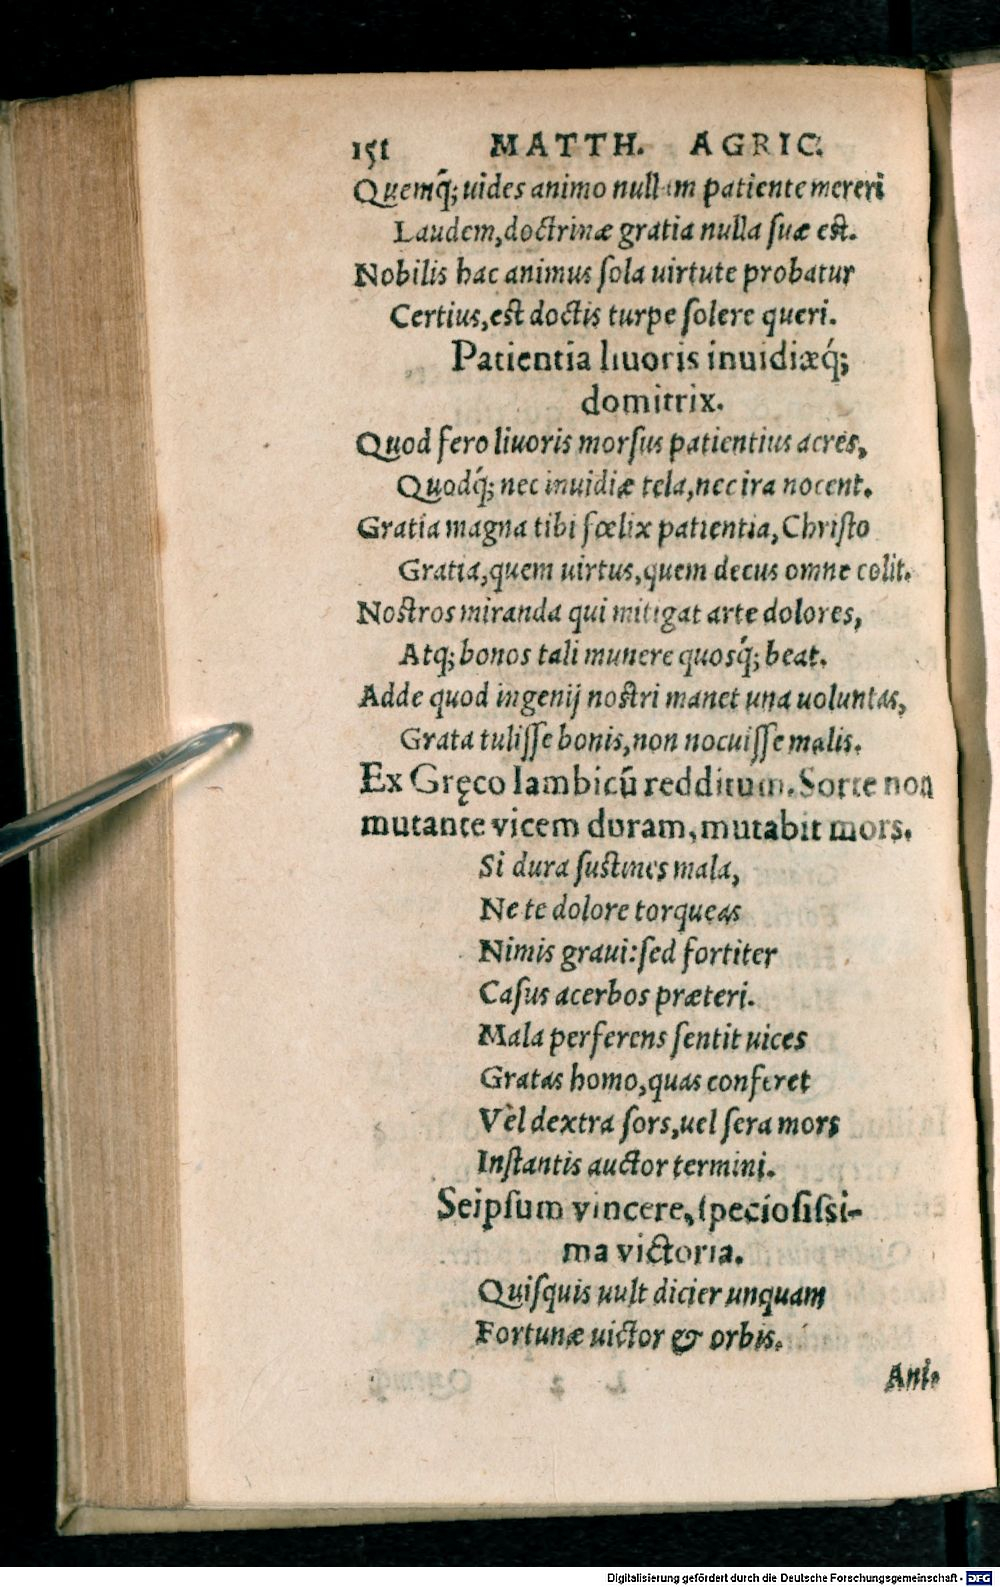 151 MATTH. AGRIC.
Quemq́; uides animo nullam patiente mereri
Laudem, doctrinæ gratia nulla suæ est.
Nobilis hac animus sola uirtute probatur
Certius, est doctis turpe solere queri.
Patientia liuoris inuidiæq́;
domitrix.
Quod fero liuoris morsus patientius acres,
Quodq́; nec inuidiæ tela, nec ira nocent.
Gratia magna tibi fœlix patientia, Christo
Gratia, quem uirtus, quem decus omne colit.
Nostros miranda qui mitigat arte dolores,
Atq; bonos tali munere quosq́; beat.
Adde quod ingenij nostri manet una uoluntas,
Grata tulisse bonis, non nocuisse malis.
Ex Gręco Iambicū redditum. Sorte non
mutante vicem duram, mutabit mors.
Si dura sustines mala,
Ne te dolore torqueas
Nimis graui: sed fortiter
Casus acerbos præteri.
Mala perferens sentit uices
Gratas homo, quas conferet
Vel dextra sors, uel sera mors
Instantis auctor termini.
Seipsum vincere, speciosissi-
ma victoria.
Quisquis uult dicier unquam
Fortunæ uictor & orbis.
Ani-
Digitalisierung gefördert durch die Deutsche Forschungsgemeinschaft - DFG